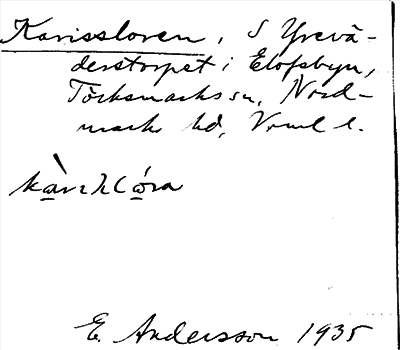 Karissloven, S Yrevä-
derstorpet i Elofsbyn,
Töcksmarks sn, Nord-
marks hd, Vrml l.
E. Andersson 1935